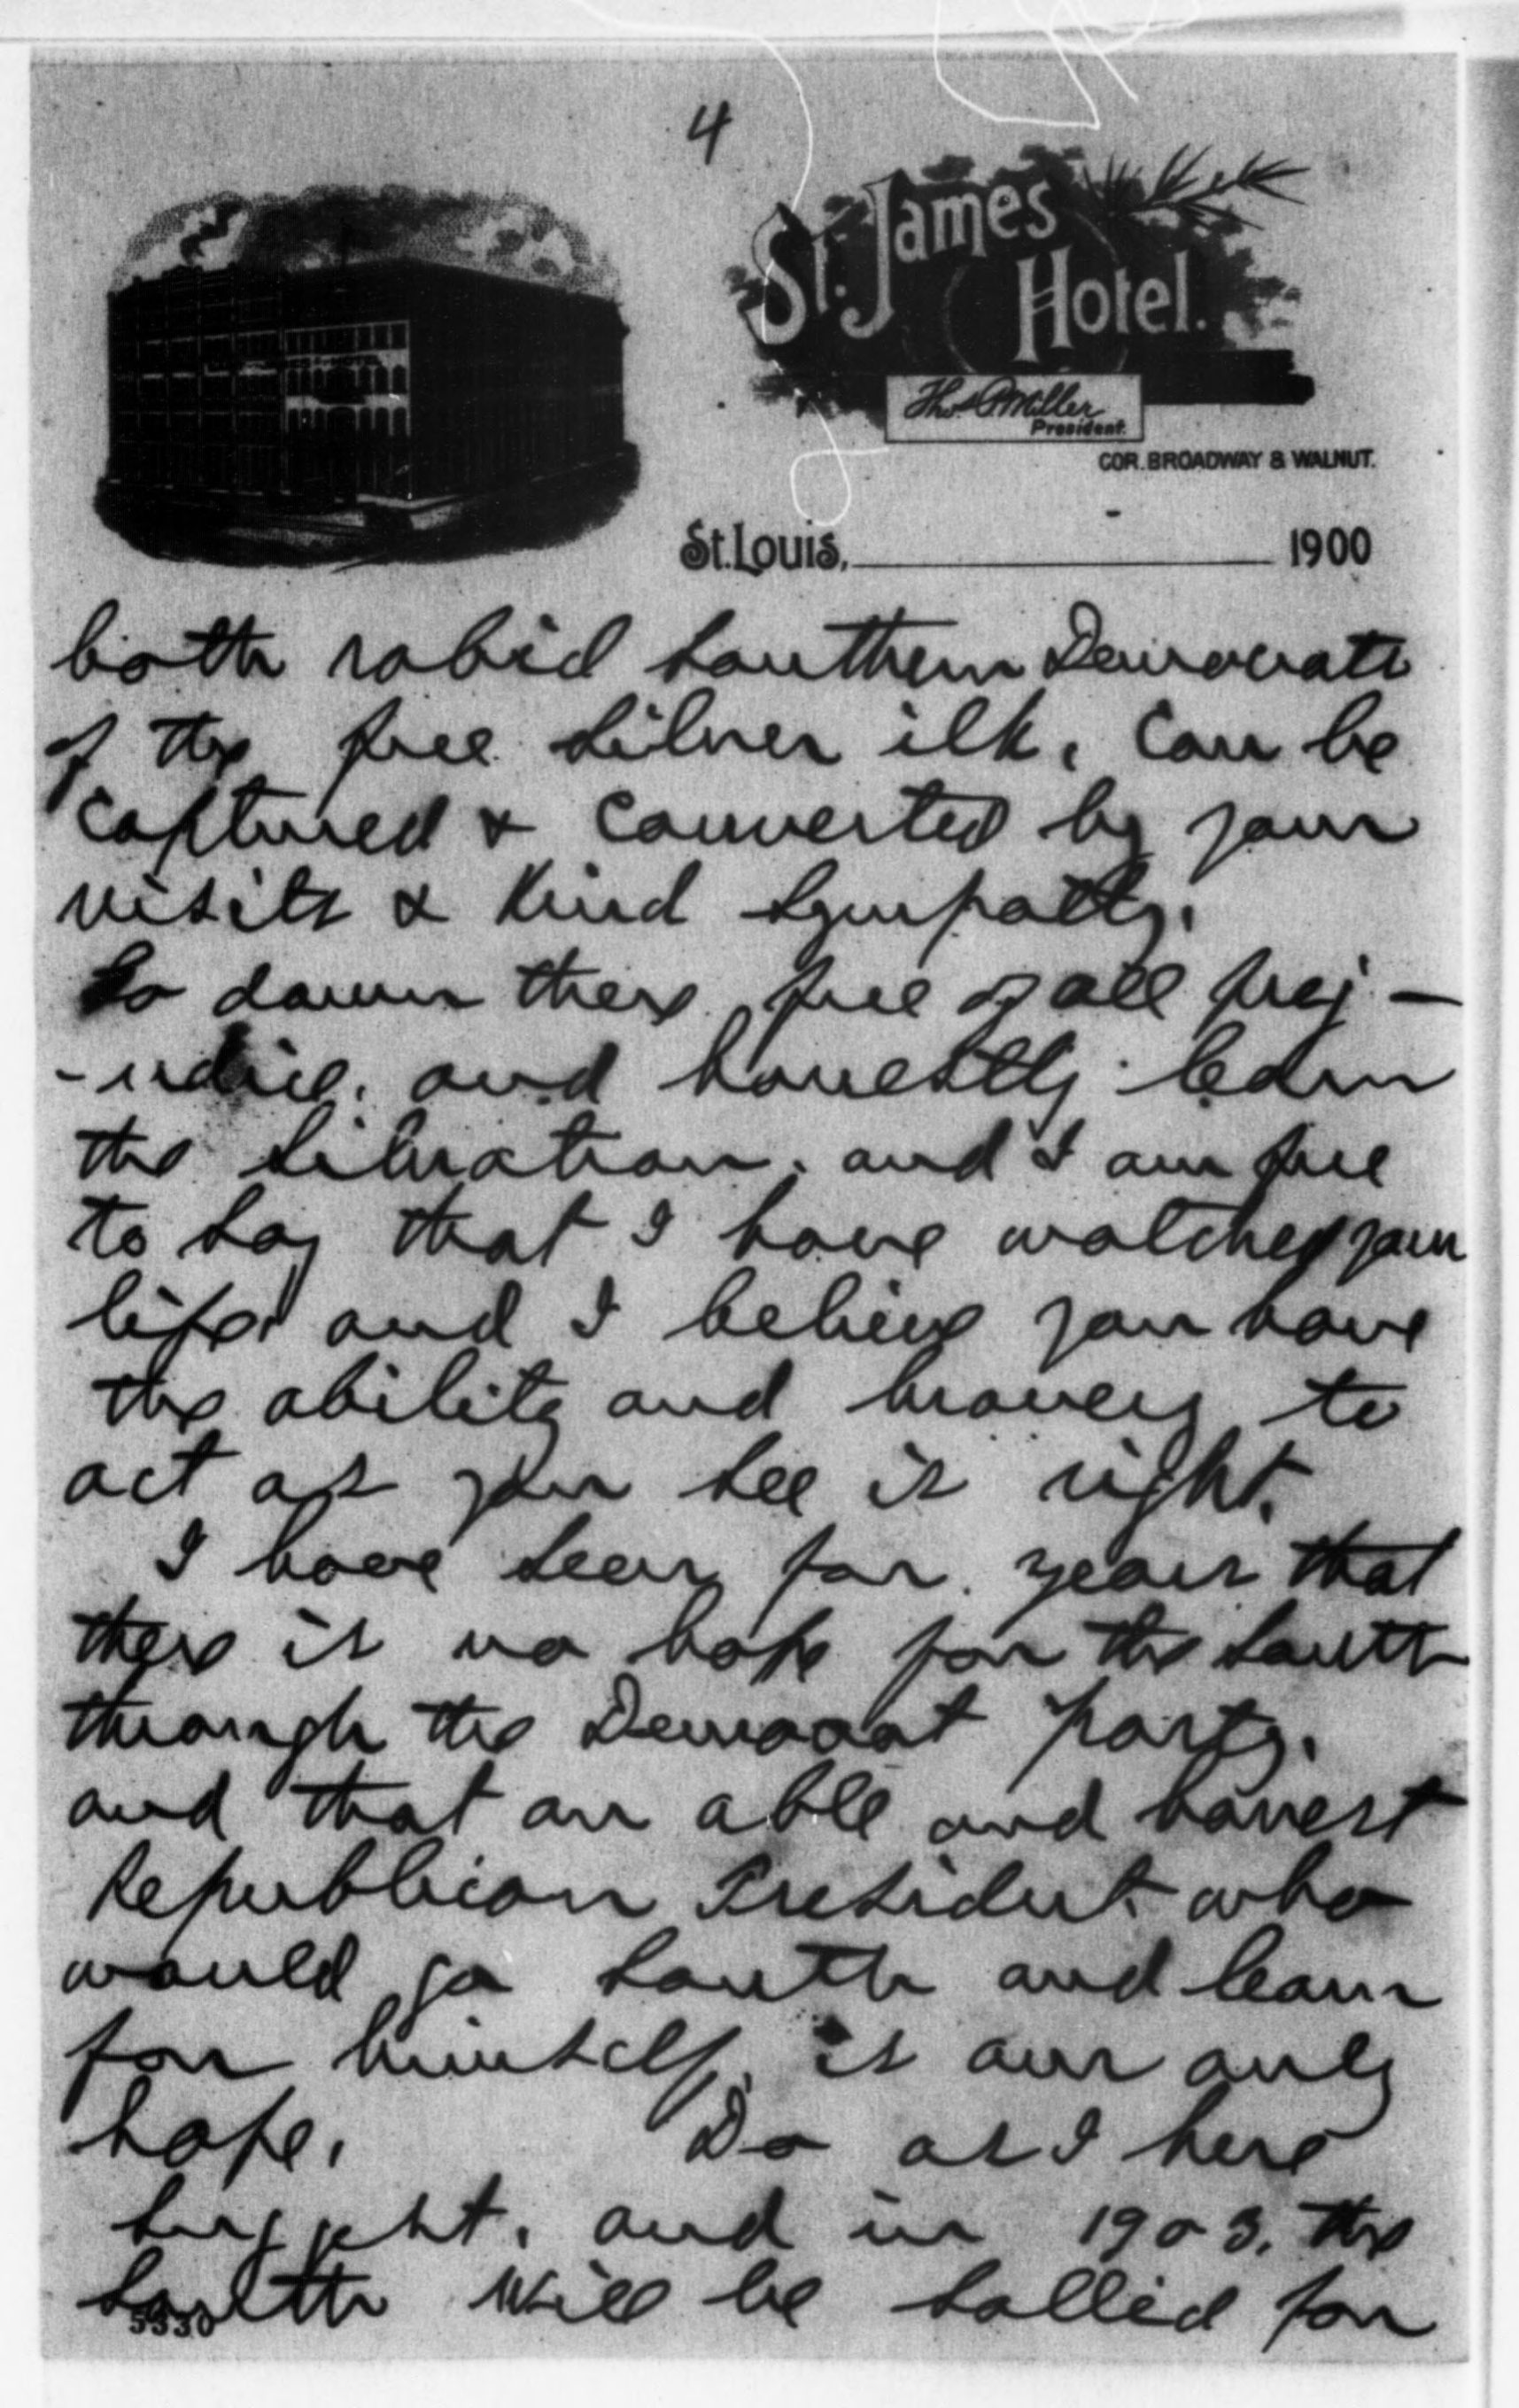 4
St. James
Hotel.
Thos. P. Miller
President.
COR. BROADWAY & WALNUT.
St. Louis, 1900
both rabid Southern Democrats
of the free silver ilk, can be
captured & converted by your
visits & kind sympathy.
Go down there free of all prej-
-udice, and honestly learn
the situation, and I am free
to say that I have watched your
life, and I believe you have
the ability and bravery to
act as you see is right.
I have seen for years that
there is no hope for the South
through the Democrat party,
and that an able and honest
Republican President who
would go South and learn
for himself, is our only
hope. Do as I here
suggest, and in 1903, the
South will be sollid for
5330